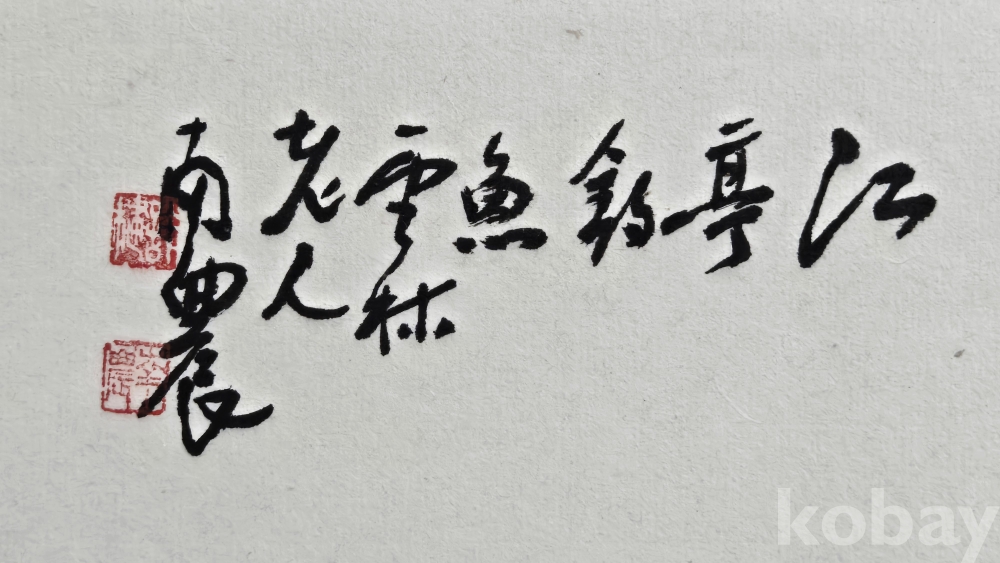 江
亭
釣
魚
雲林
老人
南農
kobay